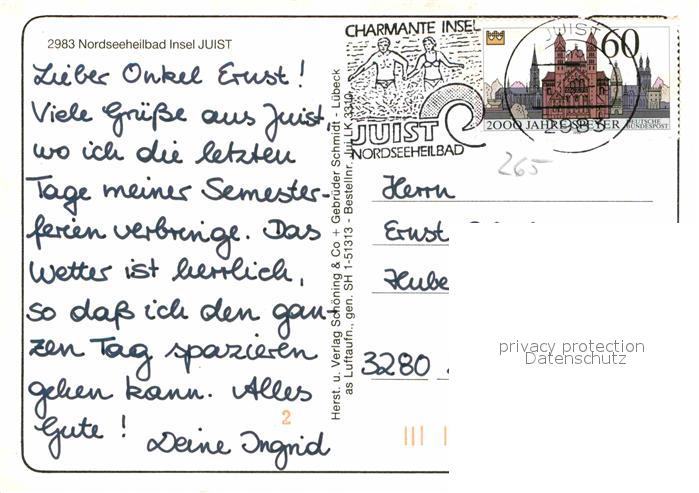 2983 Nordseeheilbad Insel JUIST
Lieber Onkel Ernst!
Viele Grüße aus Juist,
wo ich die letzten
Tage meiner Semester-
ferien verbringe. Das
Wetter ist herrlich,
so daß ich den gan-
zen Tag spazieren
gehen kann. Alles
Gute!
Deine Ingrid
2
Herst. u. Verlag Schöning & Co + Gebrüder Schmidt - Lübeck
as Luftaufn., gen. SH 1-51313 - Bestellnr. Jui LK
CHARMANTE INSEL
JUIST
NORDSEEHEILBAD
JUIST
2983
60
2000 JAHRE SPEYER
DEUTSCHE
BUNDESPOST
265
Herrn
Ernst
Hube
3280
privacy protection
Datenschutz